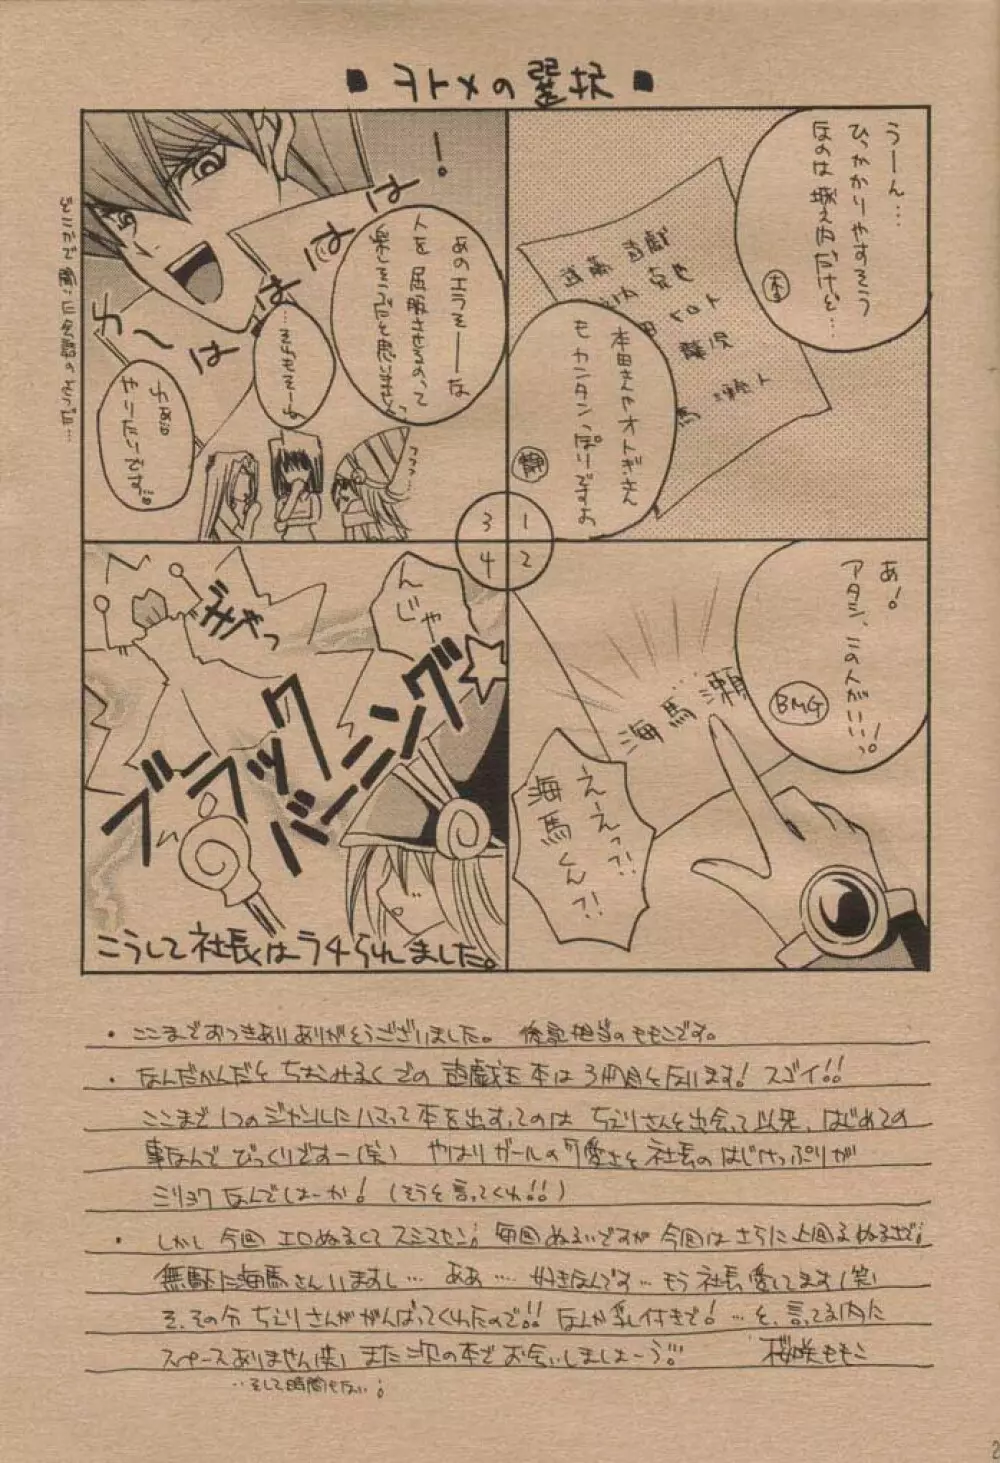 ■ヲトメの選択■
うーん…
ひっかかりやすそう
なのは城之内だけど…
杏
遊戯
本田さんやオトギさん
もカンタンっぽいですよ
静
1
2
3
4
あ!
アタシ、この人がいいっ!
BMG
海馬瀬
えーえっ?!
海馬くん?!
!
あのエラそーーな
人を屈服させるのって
楽しそうだと思いません?
…そりゃそーよ
やりたいです。
わ〜はははは
どこかで聞いた会話のような…
んじゃ
ブラック
バーニング
こうして社長はラチられました。
・ここまでおつきあいありがとうございました。後記担当のももこです。
・なんだかんだとちぇりみるくでの遊戯王本は3冊目となります! スゴイ!!
ここまで1つのジャンルにハマって本を出すってのはちぇりさんと出会って以来、はじめての
事なんでびっくりですー(笑) やはりガールの可愛さと社長のはじけっぷりが
ミリョクなんでしょーか! (そうと言ってくれ!!)
・しかし今回エロぬるくてスミマセン; 毎回ぬるいですが今回はさらに上回るぬるさで;
無駄に海馬さんいますし… ああ… 好きなんです… もう社長愛してます(笑)
そ、その分ちぇりさんががんばってくれたので!! なんか乳付きで! …と、言ってる内に
スペースありません(笑) また次の本でお会いしましょーう!! 桜咲ももこ
…そして時間もない;
2